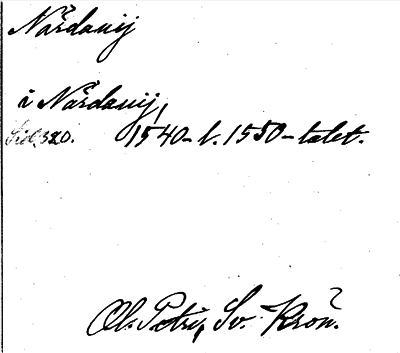 Nårdavij
å Nårdavij,
sid. 320. 1540- l. 1550-talet.
Ol. Petri, Sv. Krön.